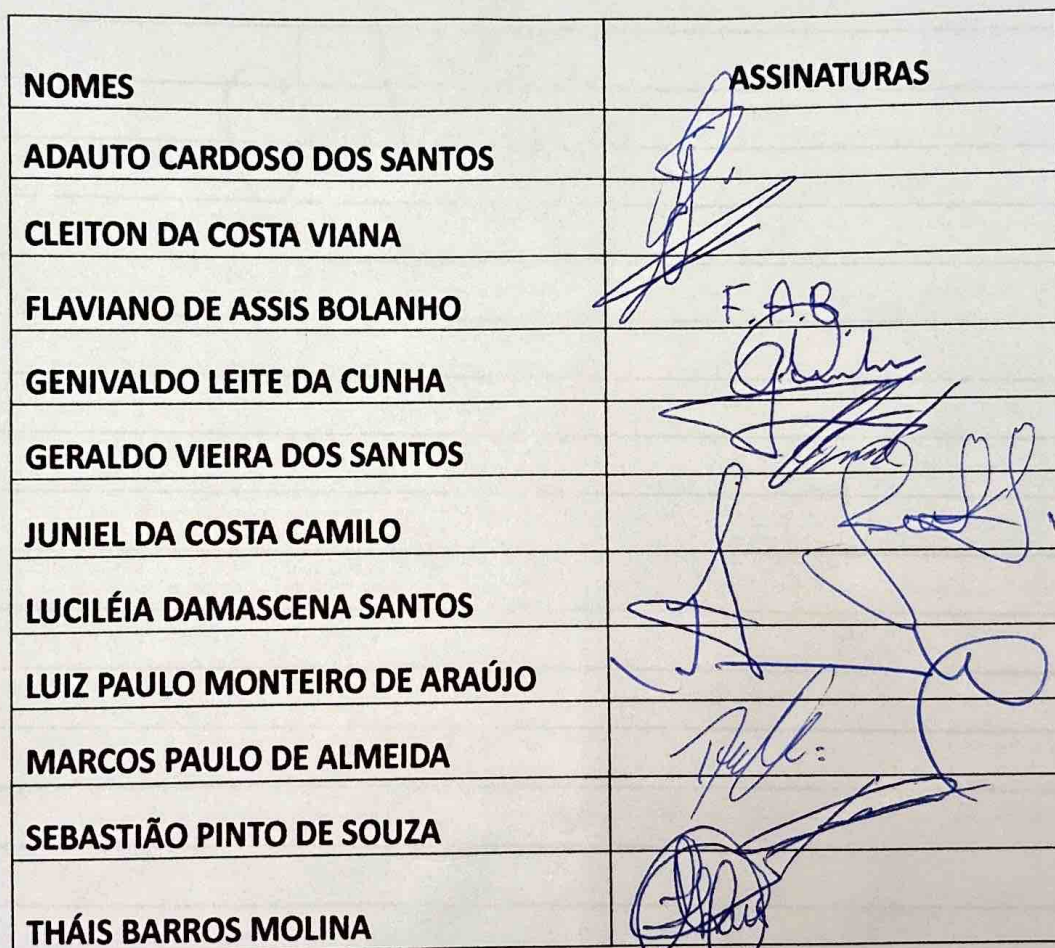 NOMES ASSINATURAS
ADAUTO CARDOSO DOS SANTOS
CLEITON DA COSTA VIANA
FLAVIANO DE ASSIS BOLANHO F.A.B
GENIVALDO LEITE DA CUNHA
GERALDO VIEIRA DOS SANTOS
JUNIEL DA COSTA CAMILO
LUCILÉIA DAMASCENA SANTOS
LUIZ PAULO MONTEIRO DE ARAÚJO
MARCOS PAULO DE ALMEIDA
SEBASTIÃO PINTO DE SOUZA
THÁIS BARROS MOLINA